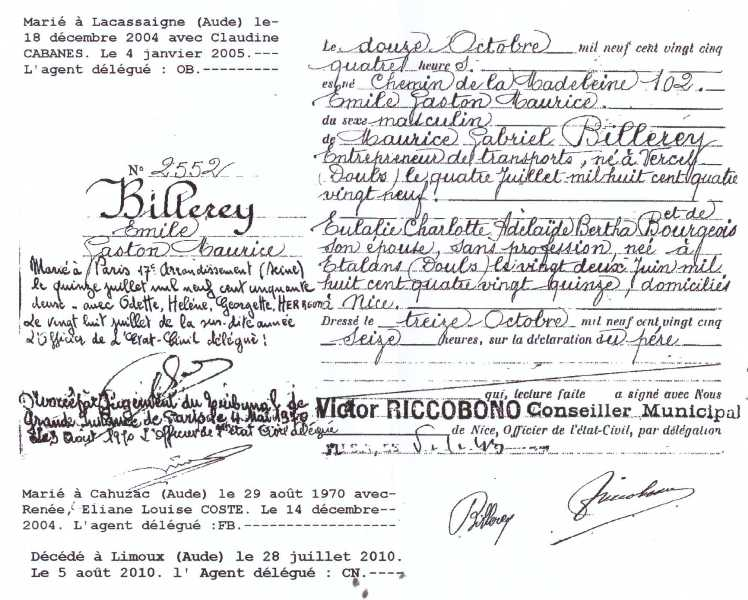 Marié à Lacassaigne (Aude) le-
18 décembre 2004 avec Claudine
CABANES. Le 4 janvier 2005.---
L'agent délégué : OB.---------
N° 2552
Billerey
Emile
Gaston Maurice
Marié à Paris 17e Arrondissement (Seine)
le quinze juillet mil neuf cent cinquante
deux - avec Odette, Hélène, Georgette, HERR
Le vingt huit juillet de la sus-dite année
L'Officier de L'Etat-Civil délégué :
Divorcé par Jugement du Tribunal de
Grande Instance de Paris le 4 Mai 1970
Août 1970 L'Officier de l'état Civil délégué
Marié à Cahuzac (Aude) le 29 août 1970 avec-
Renée, Eliane Louise COSTE. Le 14 décembre--
2004. L'agent délégué :FB.------------------
Décédé à Limoux (Aude) le 28 juillet 2010.
Le 5 août 2010. l' Agent délégué : CN.----
Le douze Octobre mil neuf cent vingt cinq
quatre heure S.
est né Chemin de la Madeleine 102.
Emile Gaston Maurice.
du sexe masculin
de Maurice Gabriel Billerey
Entrepreneur de transports, né à Vercel
(Doubs) le quatre Juillet mil huit cent quatre
vingt neuf.
et de
Eulalie Charlotte Adélaïde Bertha Bourgeois
son épouse, sans profession, née à
Etalans (Doubs) le vingt deux Juin mil
huit cent quatre vingt quinze, domiciliés
à Nice.
Dressé le treize Octobre mil neuf cent vingt cinq
seize heures, sur la déclaration du père
qui, lecture faite a signé avec Nous
Victor RICCOBONO Conseiller Municipal
de Nice, Officier de l'état-Civil, par délégation
Billerey
Riccobono